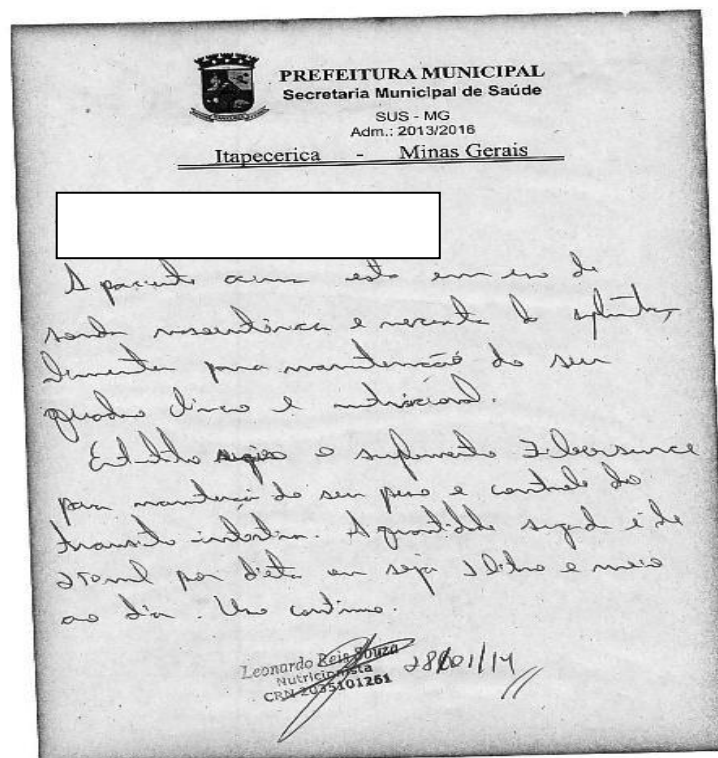 PREFEITURA MUNICIPAL
Secretaria Municipal de Saúde
SUS - MG
Adm.: 2013/2016
Itapecerica - Minas Gerais
A paciente acima está em uso de
sonda nasoentérica e necessita de
para manutenção do seu
quadro clínico e nutricional.
o suplemento Fibersource
para manutenção do seu peso e controle do
transito intestin. A quantidade sugerida é de
250ml por dieta ou seja 1 litro e meio
ao dia. Uso contínuo.
Leonardo Reis Souza
Nutricionista
CRN 2035101261
28/01/14